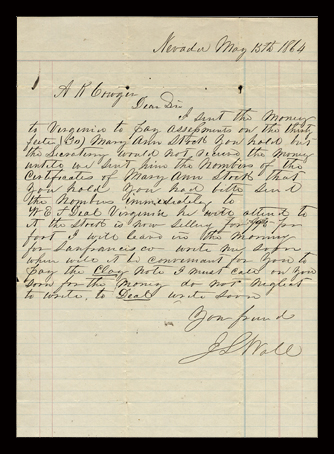 Nevada May 15th 1864
A K Cowgin
Dear Sir
I sent the Money
to Virginia to pay Assessments on the thirty
feete (30) Mary Ann Stock You hold but
the Secretary would not receive the Money
untile we sent him the Nombers of the
Certificates of Mary Ann Stock that
You hold You had bette send
the Nombers immediatly to
W E F Deal Virginia he will attend to
it the Stock is now selling for per
foot I will leave in the Morning
for Sanfrancisco write my
when will it be convenient for You to
Pay the Clay Note I must call on You
soon for the Money do not neglect
to write, to Deal write soon
Your friend
J S Wall